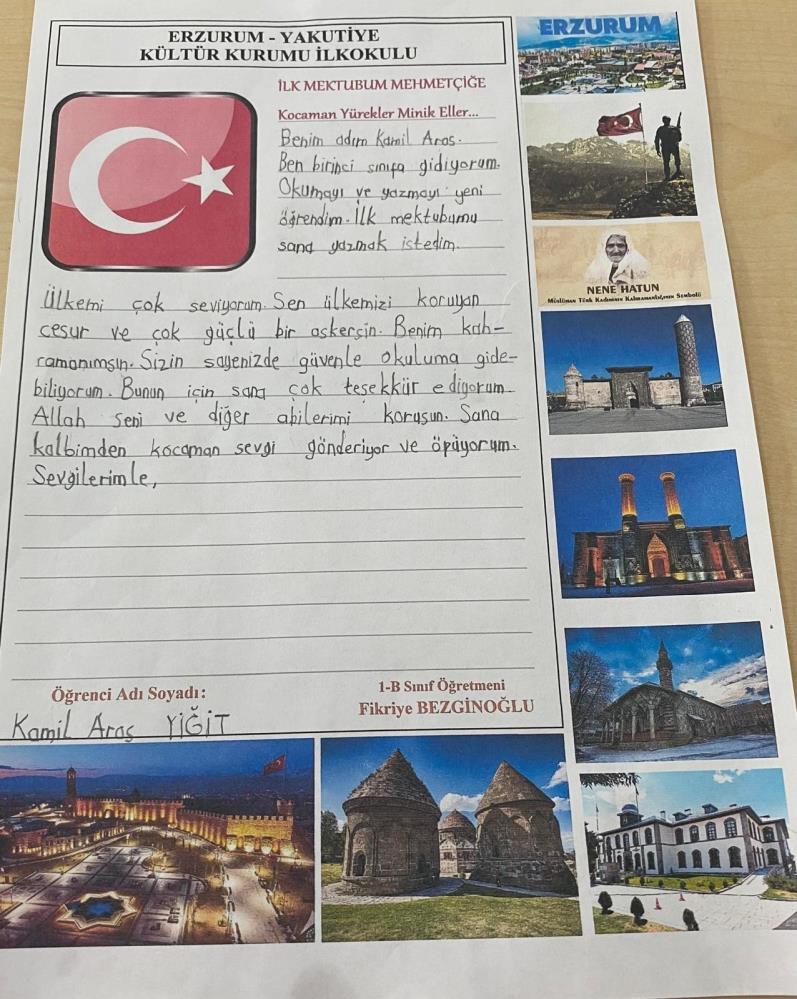 ERZURUM - YAKUTİYE
KÜLTÜR KURUMU İLKOKULU
İLK MEKTUBUM MEHMETÇİĞE
Kocaman Yürekler Minik Eller...
Benim adım Kamil Aras.
Ben birinci sınıfa gidiyorum.
Okumayı ve yazmayı yeni
öğrendim. İlk mektubumu
sana yazmak istedim.
Ülkemi çok seviyorum. Sen ülkemizi koruyan
cesur ve çok güçlü bir askersin. Benim kah-
ramanımsın. Sizin sayenizde güvenle okuluma gide-
biliyorum. Bunun için sana çok teşekkür ediyorum.
Allah seni ve diğer abilerimi korusun. Sana
kalbimden kocaman sevgi gönderiyor ve öpüyorum.
Sevgilerimle,
Öğrenci Adı Soyadı:
Kamil Aras YİĞİT
1-B Sınıf Öğretmeni
Fikriye BEZGİNOĞLU
ERZURUM
NENE HATUN
Müslüman Türk Kadınının Kahramanlığının Sembolü